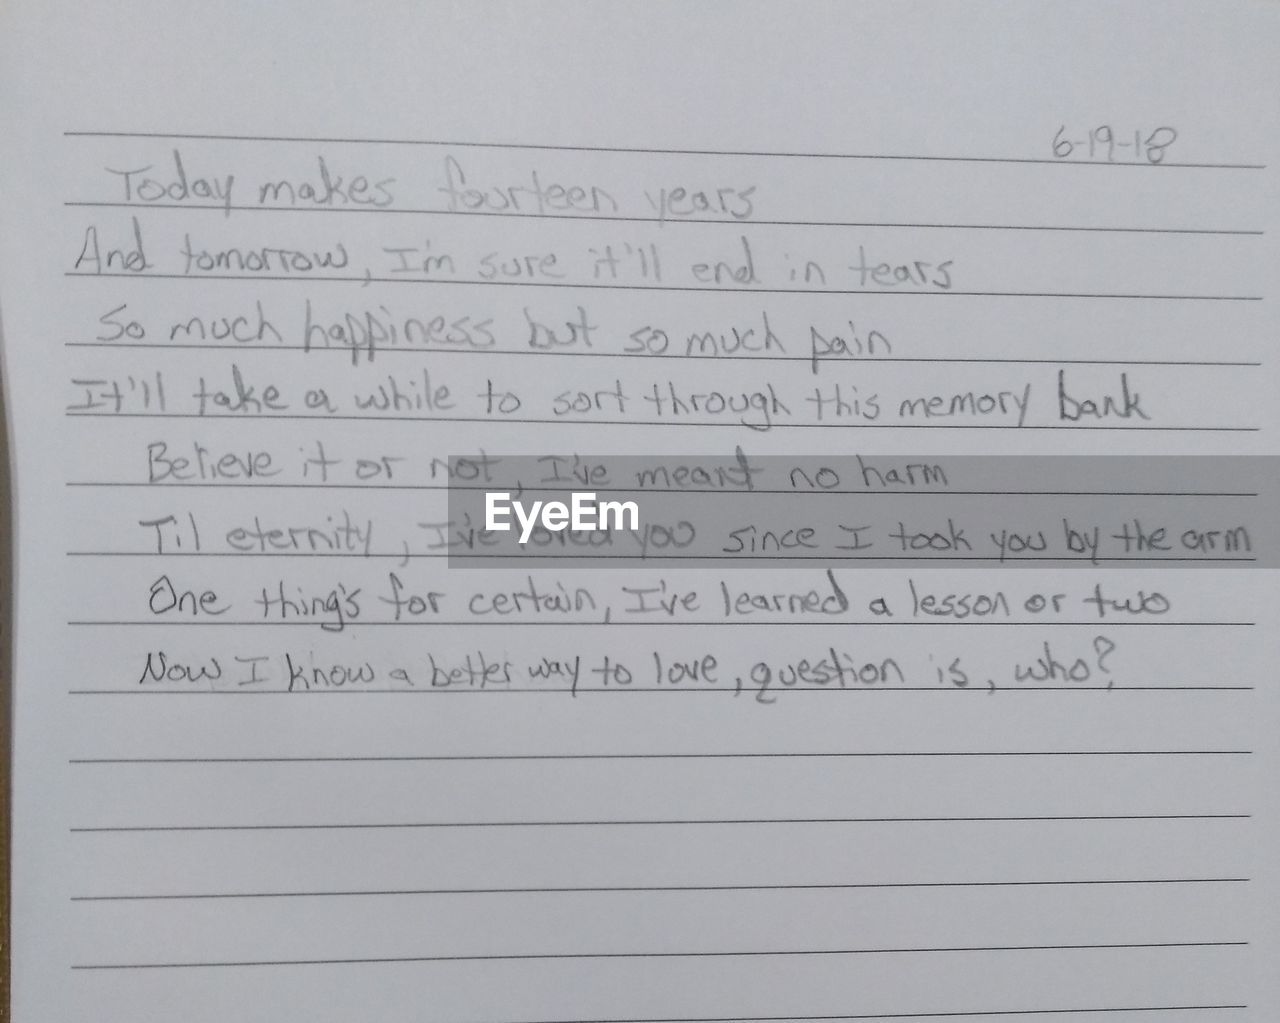 6-19-18
Today makes fourteen years
And tomorrow, I'm sure it'll end in tears
So much happiness but so much pain
It'll take a while to sort through this memory bank
Believe it or not, I've meant no harm
EyeEm
Til eternity, I've loved you since I took you by the arm
One thing's for certain, I've learned a lesson or two
Now I know a better way to love, question is, who?